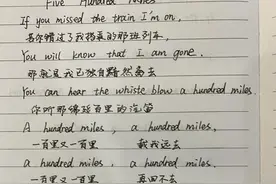 Five Hundred Miles
If you missed the train I'm on,
若你错过了我搭乘的那班列车
You will know that I am gone.
那就是我已独自黯然离去
You can hear the whistle blow a hundred miles.
你听那绵延百里的汽笛
A hundred miles, a hundred miles,
一百里又一百里 载我远去
a hundred miles, a hundred miles.
一百里又一百里 再回不去